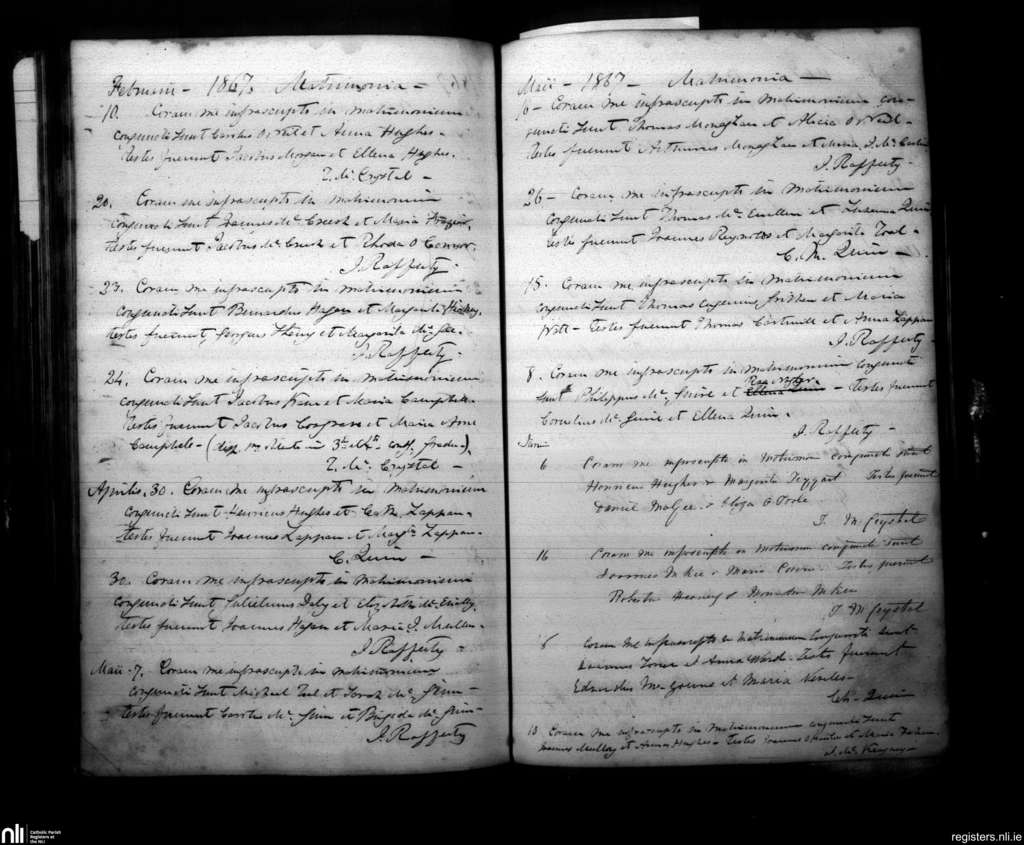 Februarii - 1867. Matrimonia -
10. Coram me infrascripto in matrimonium
conjuncti sunt Carolus O'Neil et Anna Hughes -
testes fuerunt Jacobus Morgan et Ellena Hughes.
T. Mc. Crystal -
20. Coram me infrascripto in matrimonium
conjuncti sunt Joannes Mc. et Maria
testes fuerunt Jacobus Mc. et Rhoda O Connor.
J. Rafferty.
23. Coram me infrascripto in matrimonium
conjuncti sunt Bernardus Hagan et Margarita
testes fuerunt et Margarita Mc. Gee.
J. Rafferty.
24. Coram me infrascripto in matrimonium
conjuncti sunt Jacobus et Maria Campbell.
testes fuerunt Jacobus Cosgrave et Maria Anne
Campbell - in 3° et 4° gradu).
T. Mc. Crystal -
Aprilis. 30. Coram me infrascripto in matrimonium
conjuncti sunt Henricus Hughes et C. M. Lappan -
testes fuerunt Joannes Lappan et Lappan -
C. Quin -
30. Coram me infrascripto in matrimonium
conjuncti sunt Gulielmus Daly et Elizabeth
testes fuerunt Joannes Hagan et Maria J. Mullen -
J. Rafferty -
Maii 7. Coram me infrascripto in matrimonium
conjuncti sunt Michael et Sarah Mc.
testes fuerunt Mc. et Brigida Mc.
J. Rafferty
Maii - 1867 - Matrimonia -
16 - Coram me infrascripto in matrimonium con-
juncti sunt Thomas Monaghan et Alicia O'Neill -
testes fuerunt Arthurus Monaghan et Maria J. Mc.
J. Rafferty -
26 - Coram me infrascripto in matrimonium
conjuncti sunt Thomas Mc. et Susanna Quin
testes fuerunt Joannes Reynolds et Margarita Toal -
C. M. Quin -
15. Coram me infrascripto in matrimonium
conjuncti sunt Thomas et Maria
- testes fuerunt Thomas et Anna Lappan
J. Rafferty
8. Coram me infrascripto in matrimonium conjuncti
sunt Philippus Mc. Guire et Ellena Quin - testes fuerunt
Cornelius Mc. Guire et Ellena Quin -
J. Rafferty -
Junii
6 Coram me infrascripto in matrimon conjuncti sunt
Henricus Hughes & Margarita Teggart Testes fuerunt
Daniel McGee & Eliza O Toole
T. McCrystal
16 Coram me infrascripto in matrimon conjuncti sunt
Joannes McKee & Maria Testes fuerunt
Robertus & McKee
T. McCrystal
6 Coram me infrascripto in matrimonium conjuncti sunt
Joannes et Anna Ward - Testes fuerunt
Edwardus et Maria
Quin
13 Coram me infrascripto in matrimonium conjuncti sunt
Joannes et Anna Hughes - testes Joannes et Maria
J. Mc.
nli
Catholic Parish
Registers at
the NLI
registers.nli.ie